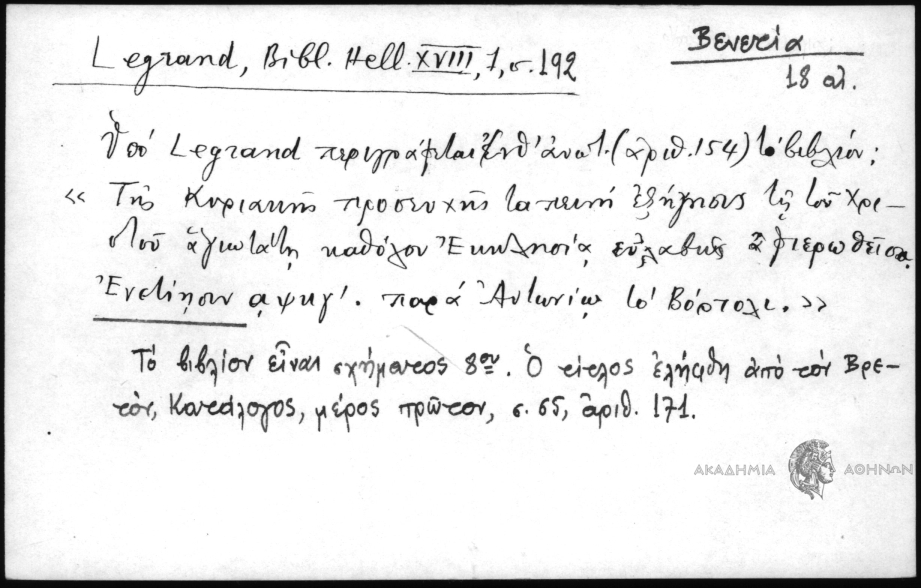 Legrand, Bibl. Hell. XVIII, 1, σ. 192
Βενετία
18 αἰ.
Ὑπό Legrand περιγράφεται ἐνθ' ἀνωτ. (ἀριθ. 154) τό βιβλίον;
« Τῆς Κυριακῆς προσευχῆς ταπεινή ἐξήγησις τῇ τοῦ Χρι-
στοῦ ἁγιωτάτῃ καθόλου Ἐκκλησίᾳ εὐλαβῶς ἀφιερωθεῖσα.
Ἐνετίησιν αψκγ'. παρά Ἀντωνίῳ τῷ Βόρτολι. »
Τό βιβλίον εἶναι σχήματος 8ου. Ὁ τίτλος ἐλήφθη ἀπό τόν Βρε-
τόν, Κατάλογος, μέρος πρῶτον, σ. 65, ἀριθ. 171.
ΑΚΑΔΗΜΙΑ ΑΘΗΝΩΝ